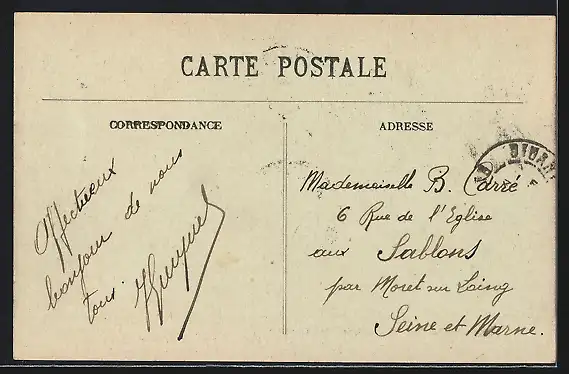 CARTE POSTALE
CORRESPONDANCE
ADRESSE
Affectueux
bonjour de nous
tous
Mademoiselle B. Carré
6 Rue de l'Eglise
aux Sablons
par Moret sur Loing
Seine et Marne.